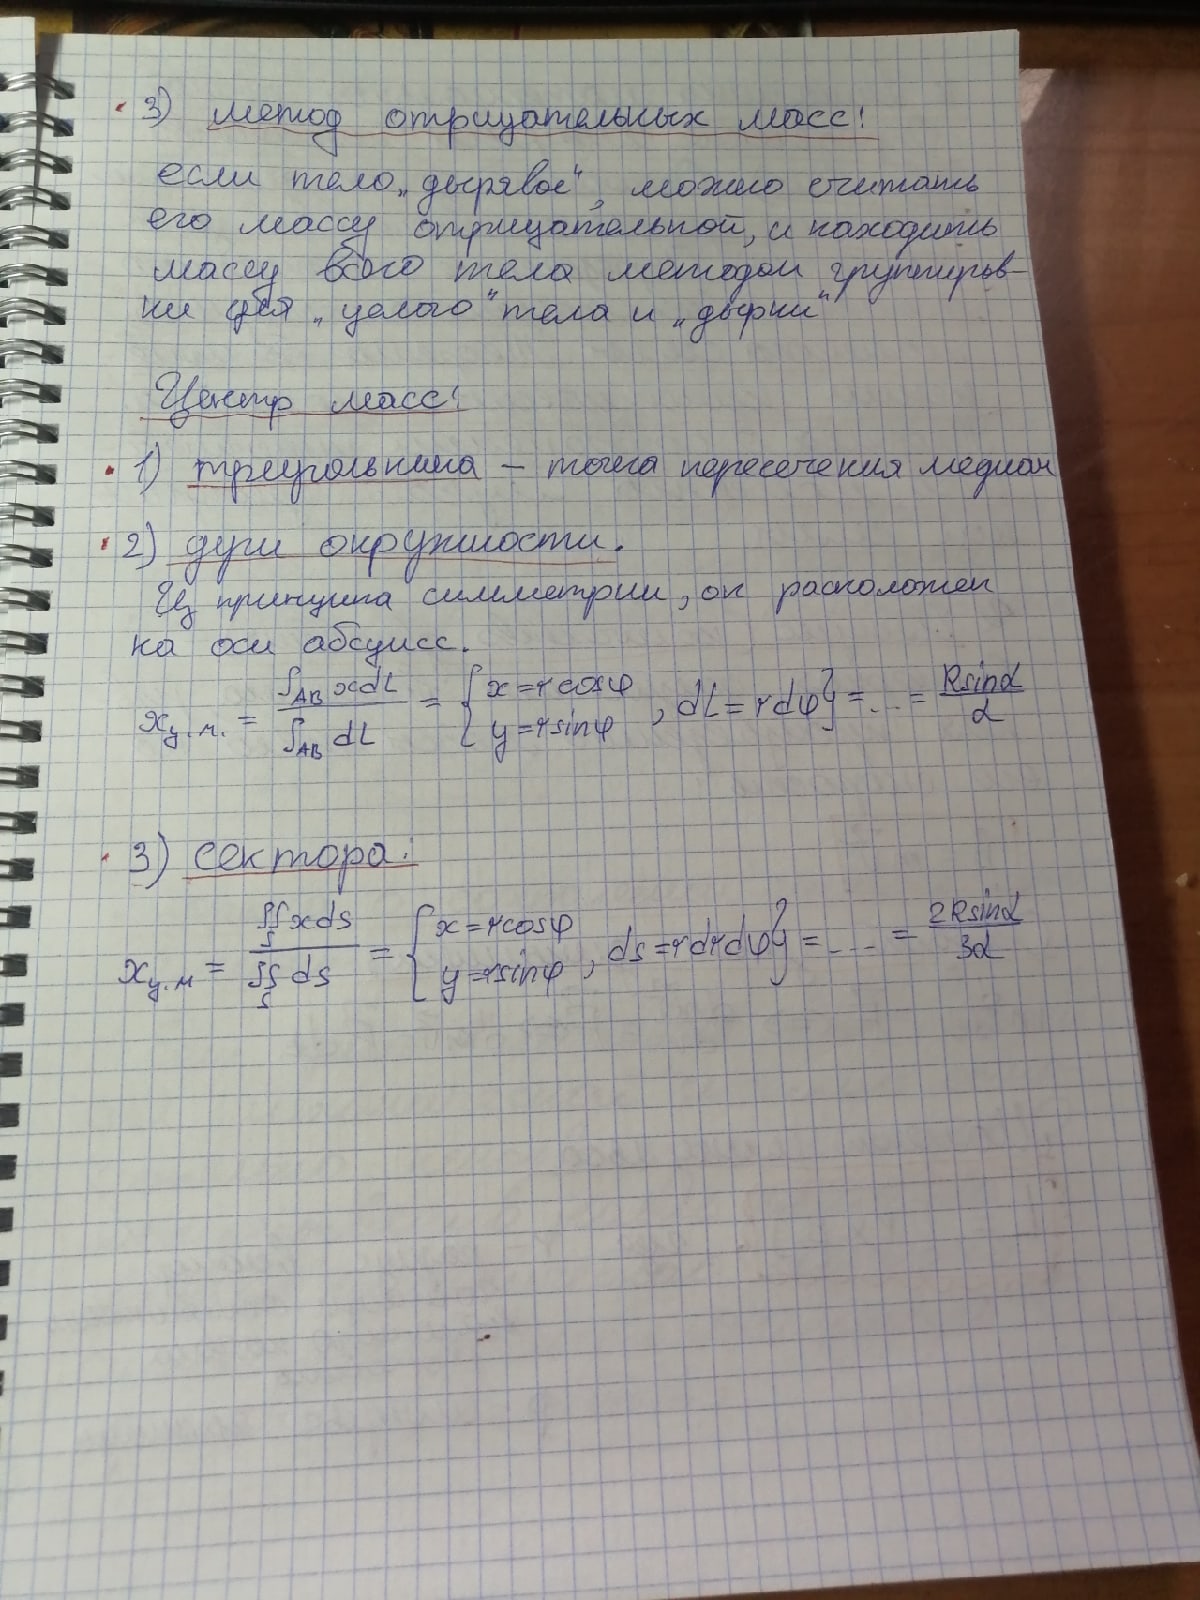 3) метод отрицательных масс:
если тело „дырявое“, можно считать
его массу отрицательной, и находить
массу всего тела методом группиров-
ки для „целого“ тела и „дырки“
Центр масс:
1) треугольника – точка пересечения медиан
2) дуги окружности.
Из принципа симметрии, он расположен
на оси абсцисс.
x_ц.м. = ∫_AB xdL / ∫_AB dL = { x=rcosφ y=rsinφ , dL=rdφ } = ... = Rsinα / α
3) сектора:
x_ц.м = ∬_S xds / ∬_S ds = { x=rcosφ y=rsinφ , ds=rdrdφ } = .... = 2Rsinα / 3α